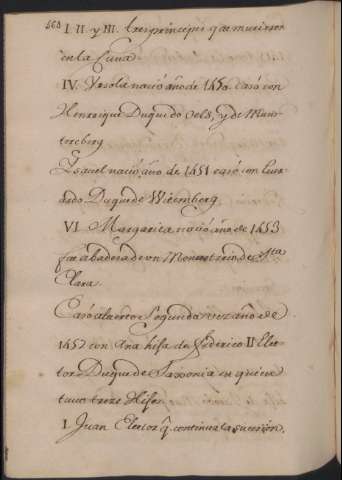 568
I. II. y III. tres principes que murieron
en la Cuna
IV. Ursola nació año de 1450. casó con
Henrrique Duque de Oels, y de Muns-
terberg
Ysavel nació año de 1451 casó con
ardo Duque de Witemberg
VI. Margarita nació año de 1453
fue abadesa de un Monasterio de Sta
Clara.
Casó alberto Segunda vez año de
1457 con Ana hija de Federico II Elec-
tor Duque de Saxonia en quien
tuvo treze Hijos
I. Juan Elector q. continua la sucesión.